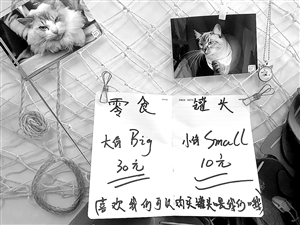 零食 罐头
大份 Big 小份 Small
30元 10元
(喜欢我们可以内买罐头喂我们哦